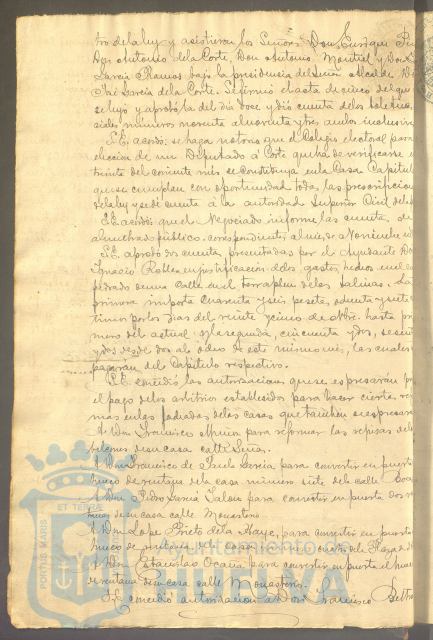 tro de la ley y asistieron los Señores Don Enrique
Don Antonio de la Corte, Don Antonio Montiel y Don
García Ramos bajo la presidencia del Señor Alcalde D
José García de la Corte. Se firmó el acta de cinco del que
se lujo y aprobó la del día doce y dió cuenta de los boletines
ciales números noventa al noventa y tres ambos inclusive
S.E. acordó: se haga notorio que el Colegio electoral para
elección de un Diputado á Corte que ha de verificarse
treinta del corriente mes se constituya en la Casa Capitul
que se cumplan con oportunidad todas las prescripcion
de la ley y se dé cuenta á la autoridad Superior Civil de la
S.E. acordó: que el Negociado informe las cuentas, de
alumbrado público, correspondientes al mes de Noviembre
S.E. aprobó dos cuentas presentadas por el Ayudante D
Ignacio Robles en justificación de los gastos hechos en el
pedrado de una calle en el terraplen de las Salinas. La
primera importa Cuarenta y seis pesetas, ochenta y siete
timos por los días del veinte y cinco de Nbre. hasta pri
mero del actual y la segunda, cincuenta y dos, sesen
y dos desde dos al ocho de este mismo mes, las cuales
pagarán del Capítulo respectivo.
S.E. concedió las autorizaciones que se espresarán p
el pago de los arbitrios establecidos para hacer ciertas re
mas en las fachadas de las casas que tambien se espresar
A Don Francisco Muñoz para reformar las repisas de
balcones de su casa calle Señas.
A Don Francisco de Paula García para convertir en puerta
hueco de ventana de la casa número siete de la calle
A Don Pedro García Jalon para convertir en puerta dos
huecos de su casa calle Monasterio
A Don Lope Prieto de la Haye, para convertir en puerta
hueco de ventana de la casa número cuatro del Plaza de
A Don Estanislao Ocaña para convertir en puerta el hueco
de ventana de su casa calle Monasterio.
S.E. concedió autorizacion á Don Francisco Beltra
PORTUS MARIS
ET TERRÆ
Ayuntamiento de
HUELVA